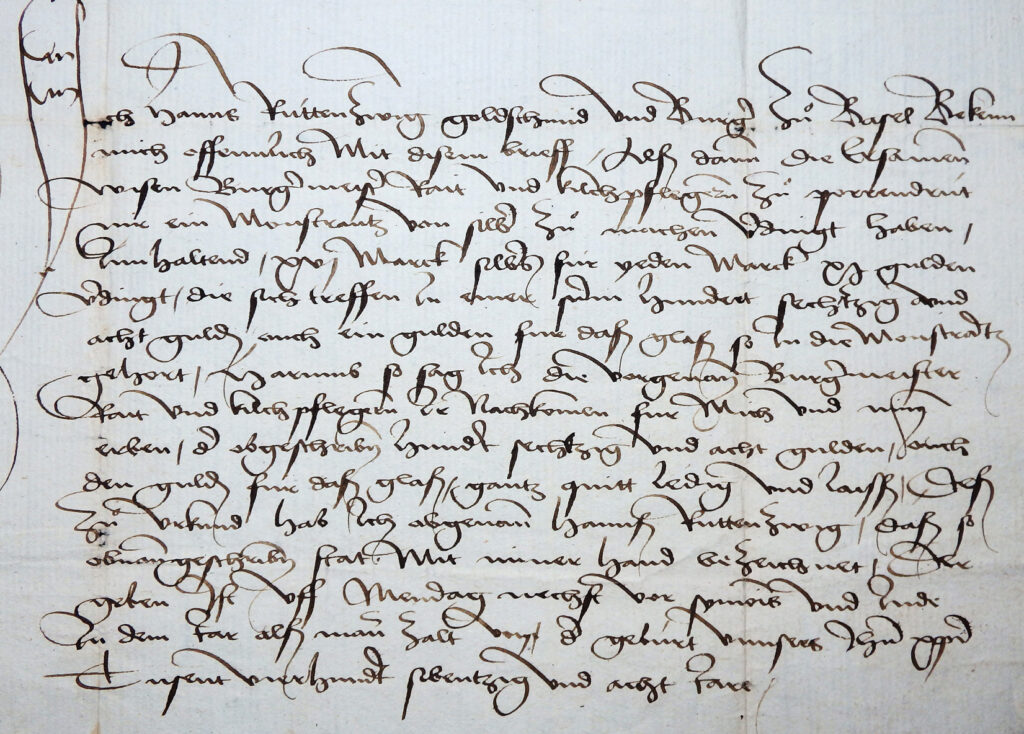 Ich Hanns Rutten Zwig goldschmid und Burg zů Basel Bekenn
mich offennlich Mit disem brieff / Alß dann die Ersamen
wisen Burgmeist Rait und kilchpflegern zů porrendrut
mir ein Monstrantz von silb zů machen vdingt haben /
Innhaltend / xvj Marck silbs fur yeden Marck xj gulden
vdingt / die sich treffen In einer sum hundert sechtzig und
acht guld / ouch ein gulden fur daß glaß so In die Monstratz
gehort / Harumb so sag Ich die vorgenan Burgmeister
Rait und kilchpflegern Ir Nachkomen fur Mich und min
erben / d obgeschribn hundt sechtzig und acht gulden / ouch
den guld fur daß glaß / gantz quitt ledig und / Deß
zů urkund hab Ich obgenan Hannß Rutten Zwig / daß so
obnangeschribn stat Mit miner hand bezeichnet / Der
geben Ist uff Mendag nechst vor symois und Jude
In dem Jar alß man zalt von d geburt unnsers Jhu xpi
Tusent vierhundt sibentzig und acht Jare